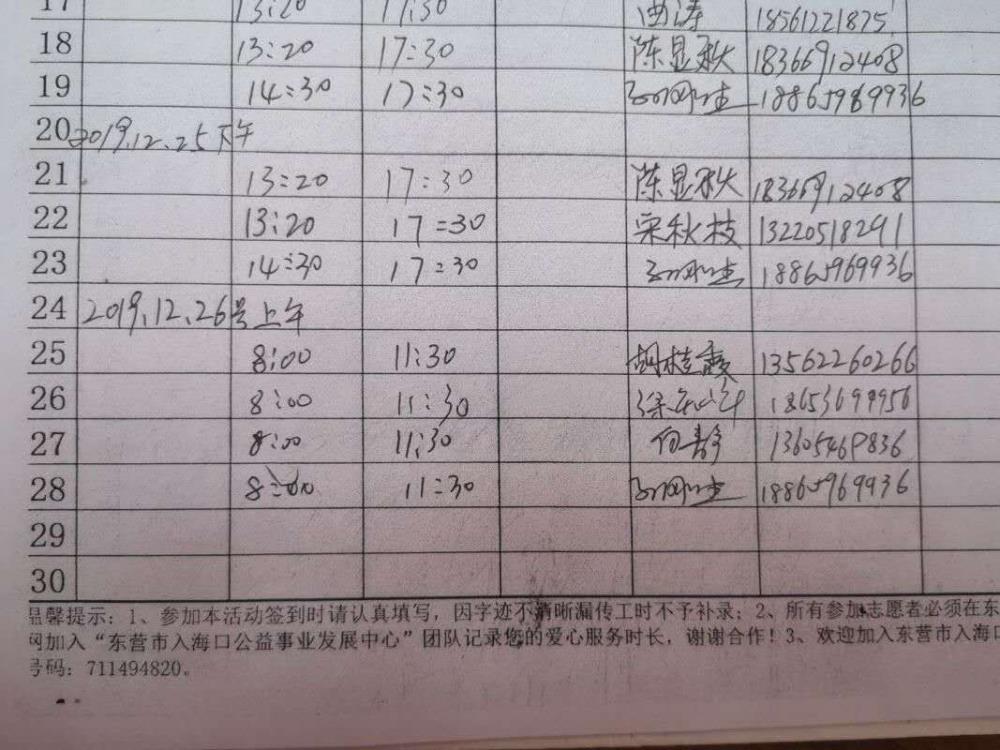 17 13:20 17:30 18561221875
18 13:20 17:30 陈显秋 18366912408
19 14:30 17:30 18865969936
20 2019.12.25下午
21 13:20 17:30 陈显秋 18366912408
22 13:20 17:30 宋秋枝 13220518291
23 14:30 17:30 18865969936
24 2019.12.26号上午
25 8:00 11:30 胡桂霞 13562260266
26 8:00 11:30
27 8:00 11:30 向静 13605469836
28 8:00 11:30 18865969936
29
30
温馨提示：1、参加本活动签到时请认真填写，因字迹不清晰漏传工时不予补录；2、所有参加志愿者必须在东
网加入“东营市入海口公益事业发展中心”团队记录您的爱心服务时长，谢谢合作！3、欢迎加入东营市入海口
号码：711494820。